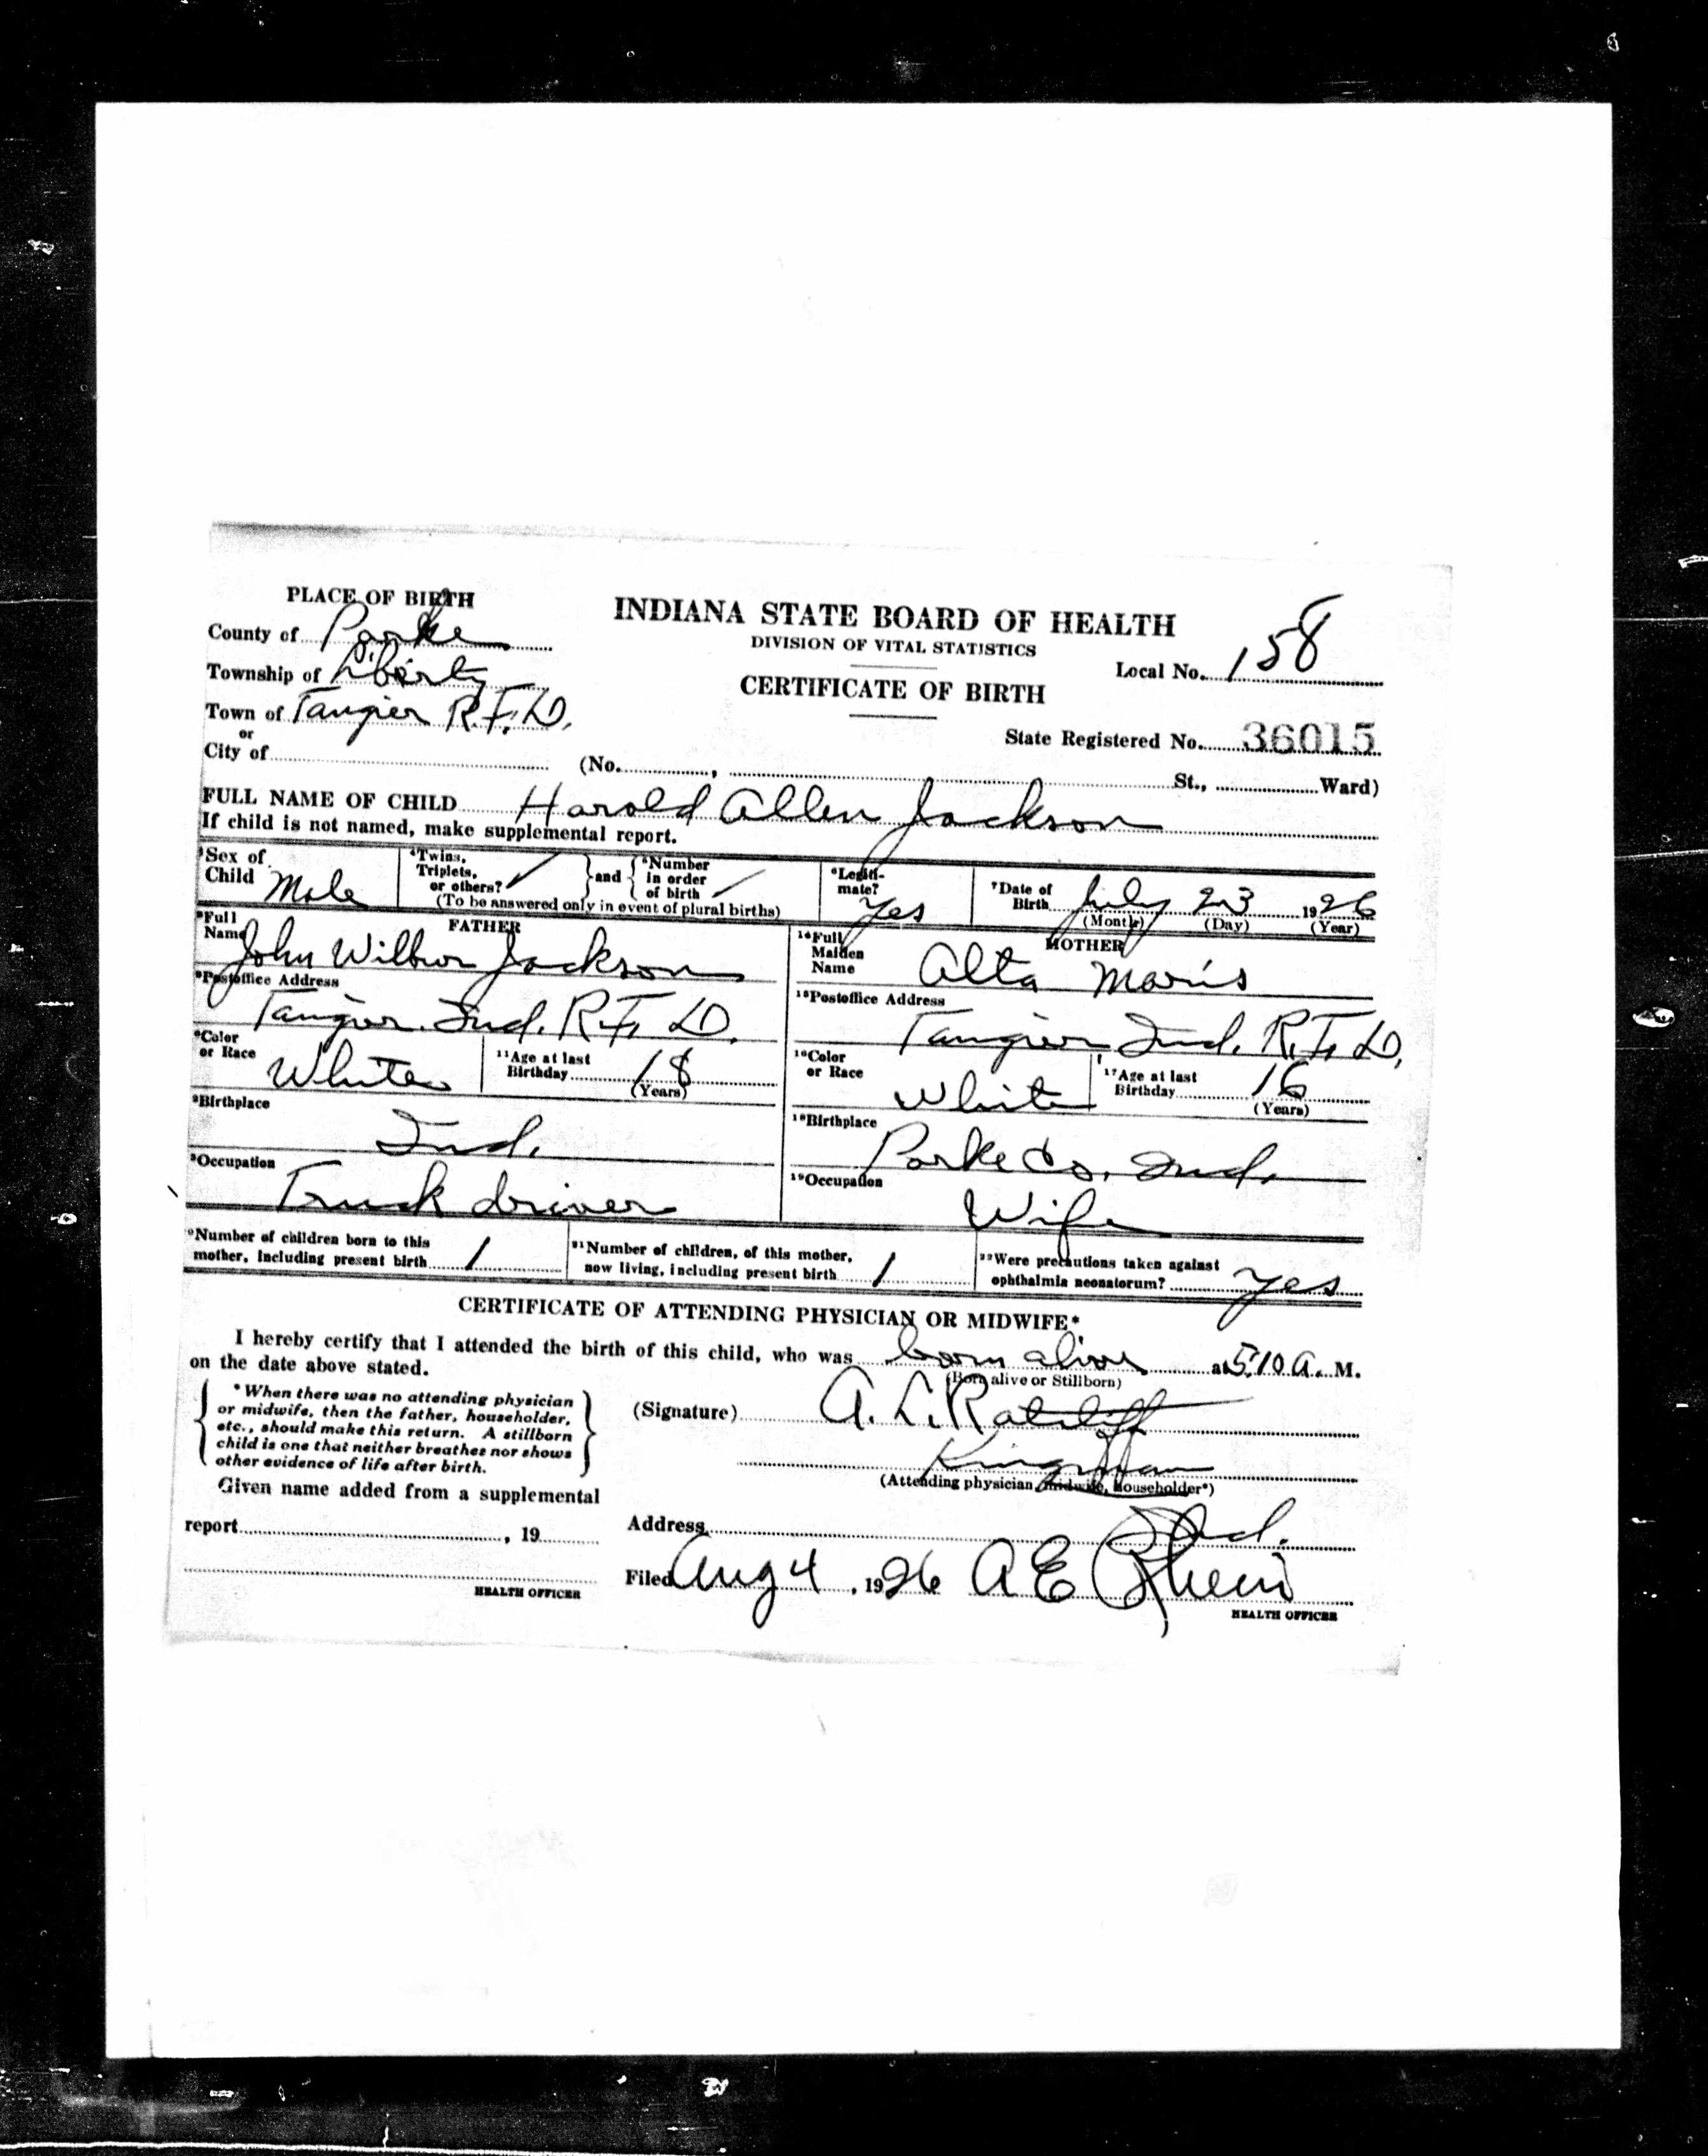 PLACE OF BIRTH
County of Parke
Township of Liberty
Town of Tangier R.F.D.
or
City of
INDIANA STATE BOARD OF HEALTH
DIVISION OF VITAL STATISTICS
CERTIFICATE OF BIRTH
Local No. 158
State Registered No. 36015
(No. , St., Ward)
FULL NAME OF CHILD Harold Allen Jackson
If child is not named, make supplemental report.
Sex of Child Male
Twins, Triplets, or others? and Number in order of birth
(To be answered only in event of plural births)
Legiti-mate? Yes
7 Date of Birth July 23 1926
(Month) (Day) (Year)
FATHER
Full Name John Wilbur Jackson
Postoffice Address
Tangier Ind. R.F.D.
Color or Race White
11 Age at last Birthday 18
(Years)
Birthplace
Ind.
Occupation
Truck driver
MOTHER
14 Full Maiden Name Alta Moris
15 Postoffice Address
Tangier Ind. R.F.D.
16 Color or Race White
17 Age at last Birthday 16
(Years)
18 Birthplace
Parke Co. Ind.
19 Occupation
Wife
Number of children born to this mother, including present birth 1
21 Number of children, of this mother, now living, including present birth 1
22 Were precautions taken against ophthalmia neonatorum? yes
CERTIFICATE OF ATTENDING PHYSICIAN OR MIDWIFE*
I hereby certify that I attended the birth of this child, who was born alive at 5:10 A. M.
(Born alive or Stillborn)
on the date above stated.
* When there was no attending physician
or midwife, then the father, householder,
etc., should make this return. A stillborn
child is one that neither breathes nor shows
other evidence of life after birth.
(Signature) A. L. Ratcliff
Kingman
(Attending physician, midwife, householder*)
Given name added from a supplemental
report , 19
HEALTH OFFICER
Address Ind.
Filed Aug 4, 1926 A E Rhein
HEALTH OFFICER